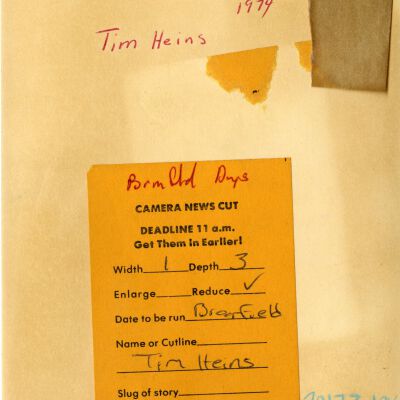 1974
Tim Heins
Days
CAMERA NEWS CUT
DEADLINE 11 a.m.
Get Them in Earlier!
Width 1 Depth 3
Enlarge Reduce ✓
Date to be run
Name or Cutline
Tim Heins
Slug of story